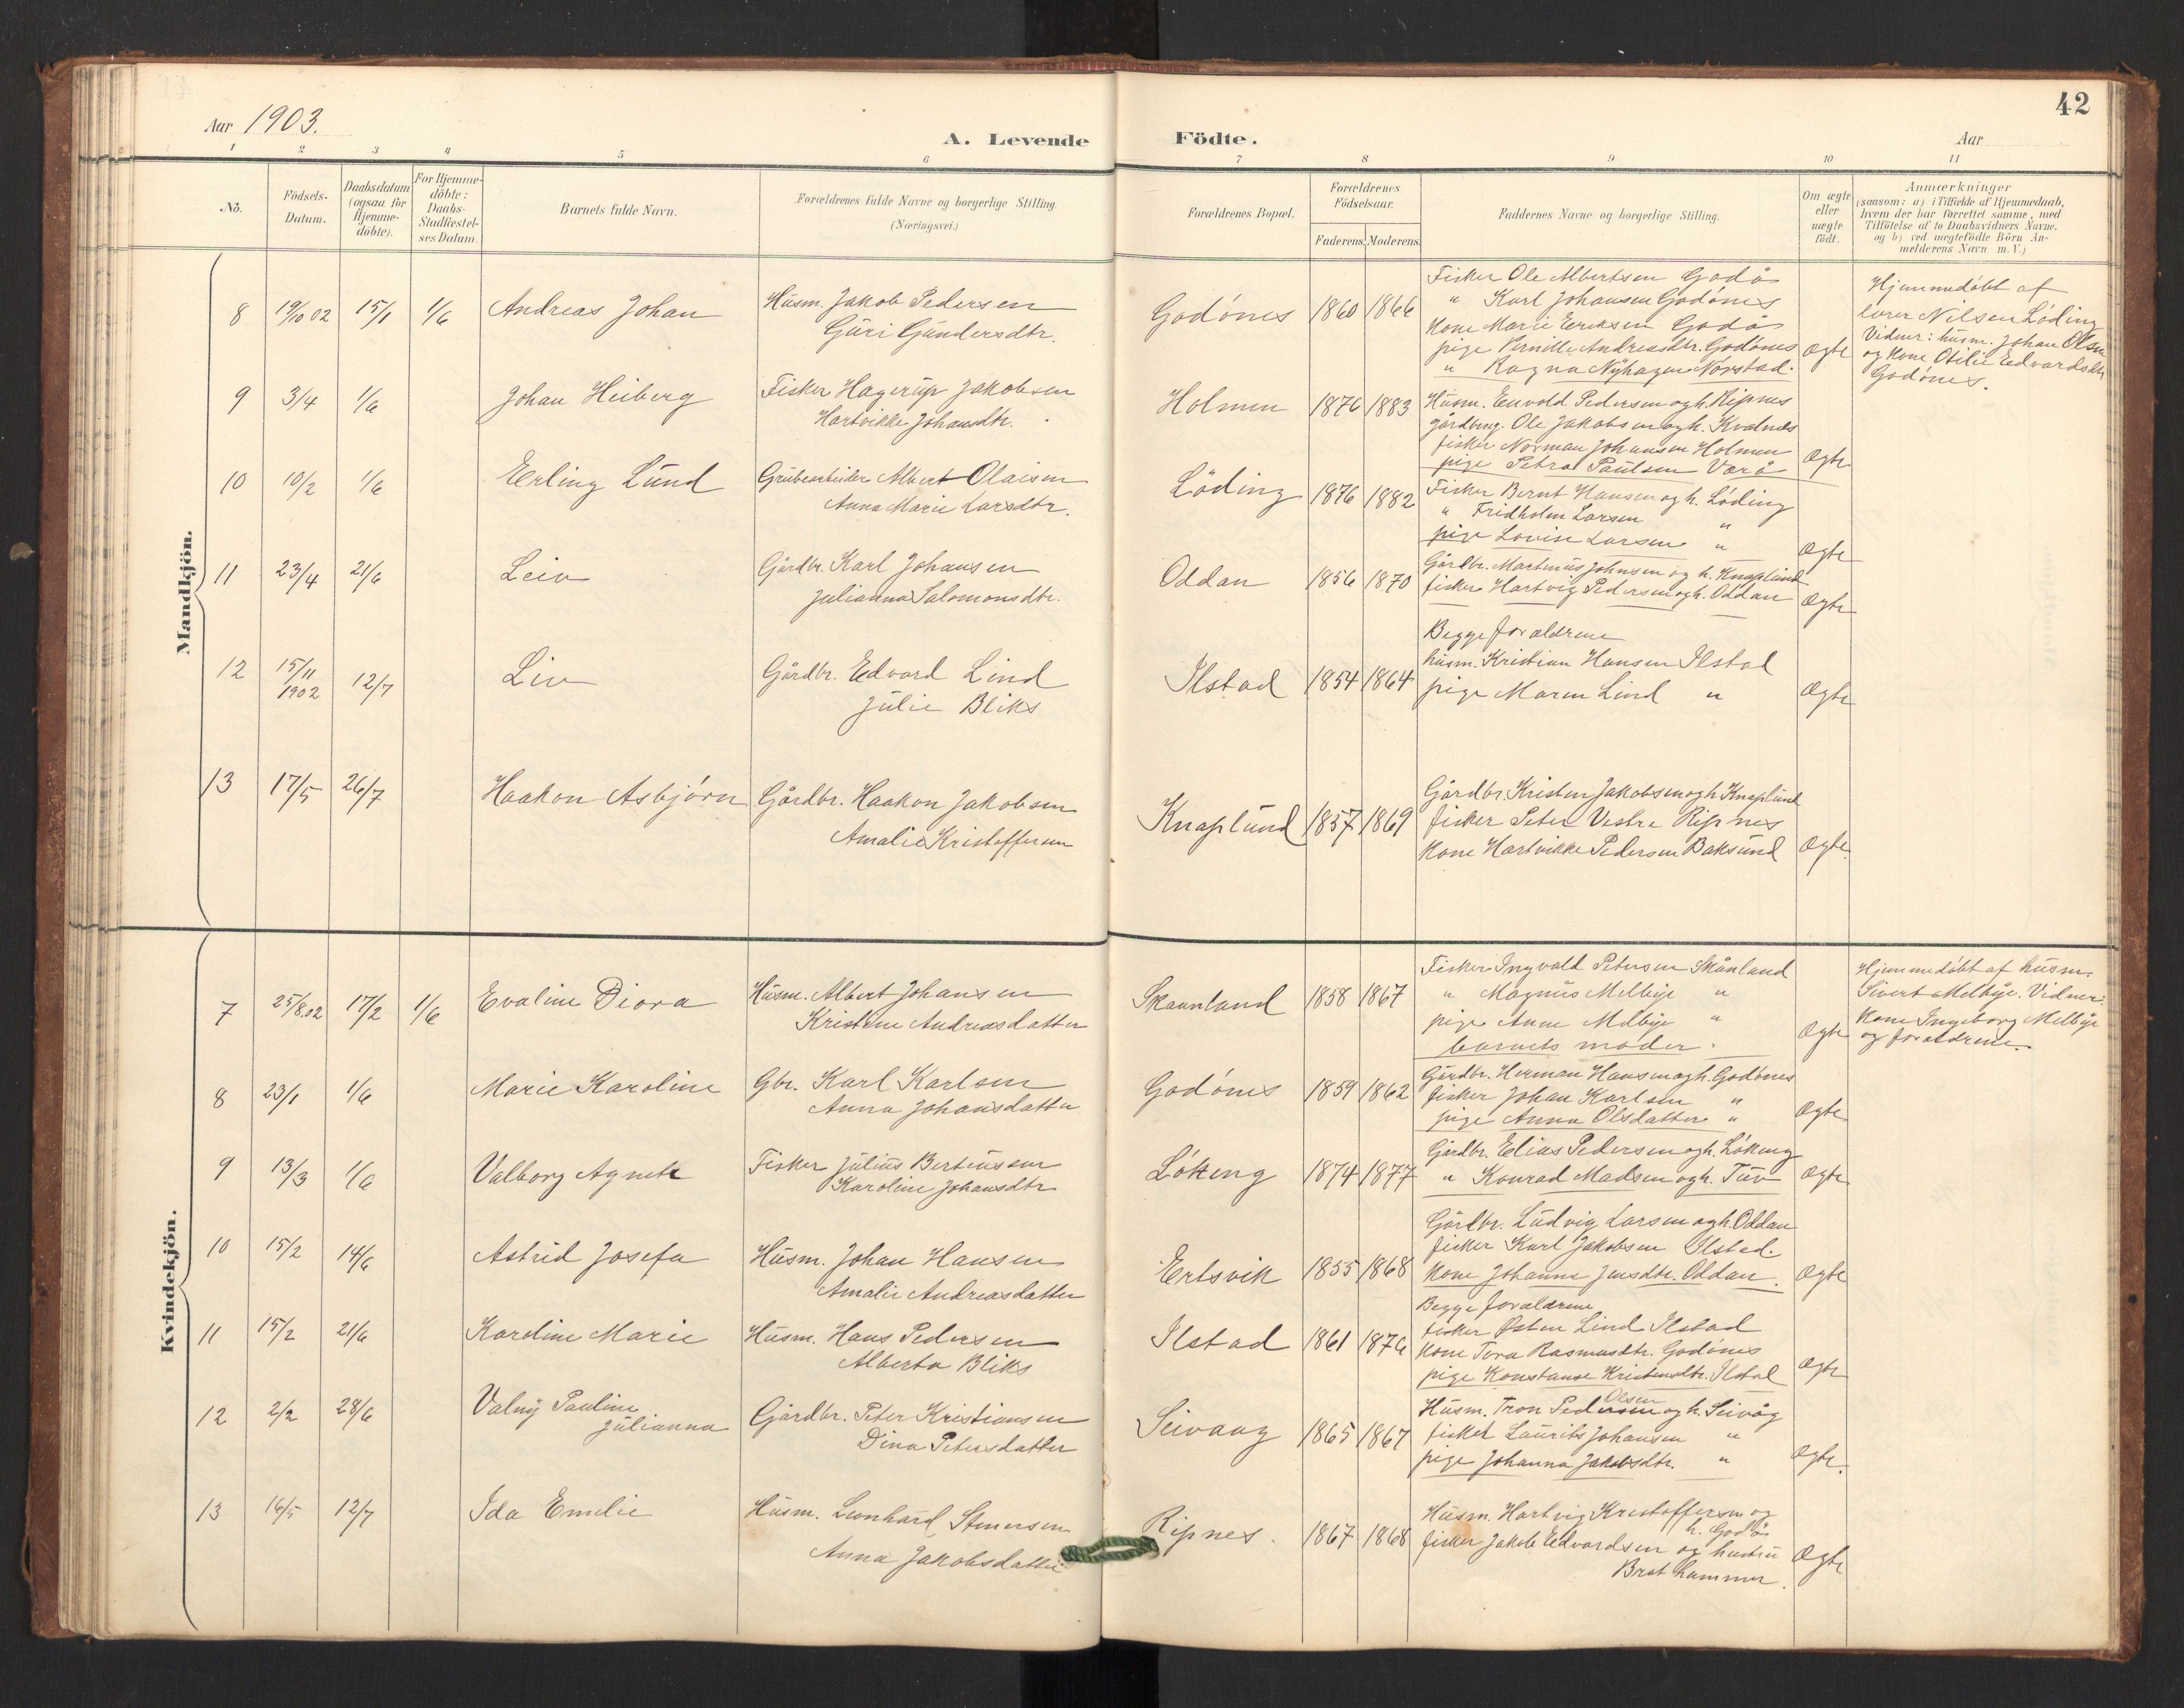 42
Aar 1903.
A. Levende Födte.
Aar
1 2 3 4 5 6 7 8 9 10 11
No.
Födsels-Datum.
Daabsdatum (ogsaa for Hjemme-döbte).
For Hjemme-döbte: Daabs-Stadfæstel-ses Datum.
Barnets fulde Navn.
Forældrenes fulde Navne og borgerlige Stilling.
(Næringsvei.)
Forældrenes Bopæl.
Forældrenes Födselsaar.
Faderens. Moderens.
Faddernes Navne og borgerlige Stilling.
Om ægte eller uægte födt.
Anmærkninger
(saasom: a) i Tilfælde af Hjemmedaab,
hvem der har forrettet samme, med
Tilföielse af to Daabsvidners Navne,
og b) ved uægtefödte Börn An-
melderens Navn m. V.)
Mandkjön.
8 19/10 02 15/1 1/6 Andreas Johan
Husm. Jakob Pedersen
Guri Gundersdtr.
Godönes 1860 1866
Fisker Ole Albertsen Godö
" Karl Johansen Godönes
Kone Marie Eriksen Godö
pige Pernille Andreasdtr. Godönes
" Ragna Nyhagen Norstad.
Ægte
Hjemmedöbt af
lærer Nilsen Löding
Vidner: husm. Johan Olsen
og Kone Otilie Edvardsdtr
Godönes.
9 3/4 1/6 Johan Heiberg
Fisker Hagerup Jakobsen
Hartvikke Johansdtr.
Holmen 1876 1883
Husm. Envold Pedersen og h. Ripnes
gårdbrug. Ole Jakobsen og h. Kvalnes
fisker Norman Johansen Holmen
pige Petra Paulsen Værö
Ægte
10 10/2 1/6 Erling Lund
Grubearbeider Albert Olaisen
Anna Marie Larsdtr.
Löding 1876 1882
Fisker Bernt Hansen og h. Löding
" Fridholm Larsen "
pige Lovise Larsen "
Ægte
11 23/4 21/6 Leiv
Gårdbr. Karl Johansen
Julianna Salomonsdtr.
Oddan 1856 1870
Gårdbr. Martinus Johnsen og h. Knaplund
fisker Hartvig Pedersen og h. Oddan
Ægte
12 15/11 1902 12/7 Liv
Gårdbr. Edvard Lind
Julie Bliks
Ilstad 1854 1864
Begge forældrene
husm. Kristian Hansen Ilstad
pige Maren Lind "
Ægte
13 17/5 26/7 Haakon Asbjörn
Gårdbr. Haakon Jakobsen
Amalie Kristoffersen
Knaplund 1857 1869
Gårdbr. Kristen Jakobsen og h Knaplund
fisker Peter Vestre Ripnes
Kone Hartvikke Pedersen Baksund
Ægte.
Kvindekjön.
7 25/8.02 17/2 1/6 Evaline Diora
Husm. Albert Johansen
Kristine Andreasdatter
Skaanland 1858 1867
Fisker Ingvald Petersen Skånland
" Magnus Melbye "
pige Anne Melbye "
barnets moder.
Ægte
Hjemmedöbt af husm.
Sivert Melbye. Vidner:
Kone Ingeborg Melbye
og forældrene.
8 23/1 1/6 Marie Karoline
Gbr. Karl Karlsen
Anna Johansdatter
Godönes 1859 1862
Gårdbr. Herman Hansen og h. Godönes
fisker Johan Karlsen "
pige Anna Olsdatter "
Ægte
9 13/3 1/6 Valborg Agnete
Fisker Julius Berteussen
Karoline Johansdtr
Lökeng 1874 1877
Gårdbr. Elias Pedersen og h. Lökeng
" Konrad Madsen og h. Tuv
Ægte
10 15/2 14/6 Astrid Josefa
Husm. Johan Hansen
Amalie Andreasdatter
Ertsvik 1855 1868
Gårdbr. Ludvig Larsen og h. Oddan
fisker Karl Jakobsen Ilstad.
Kone Johanne Jensdtr. Oddan.
Ægte
11 15/2 21/6 Karoline Marie
Husm. Hans Pedersen
Alberta Bliks
Ilstad 1861 1876
Begge forældrene
fisker Østen Lind Ilstad
Kone Tora Rasmusdtr. Godönes
pige Konstanse Kristensdtr. Ilstad
Ægte
12 2/2 28/6 Valny Pauline
Julianna
Gårdbr. Peter Kristiansen
Dina Petersdatter
Seivaag 1865 1867
Olsen
Husm. Tron Pedersen og h. Seivåg
fisker Laurits Johansen "
pige Johanna Jakobsdtr. "
Ægte.
13 16/5 12/7 Ida Emilie
Husm. Leonhard Stenersen
Anna Jakobsdatter
Ripnes. 1867 1868
Husm. Hartvig Kristoffersen og
h. Godö
fisker Jakob Edvardsen og hustru
Brathammer.
Ægte